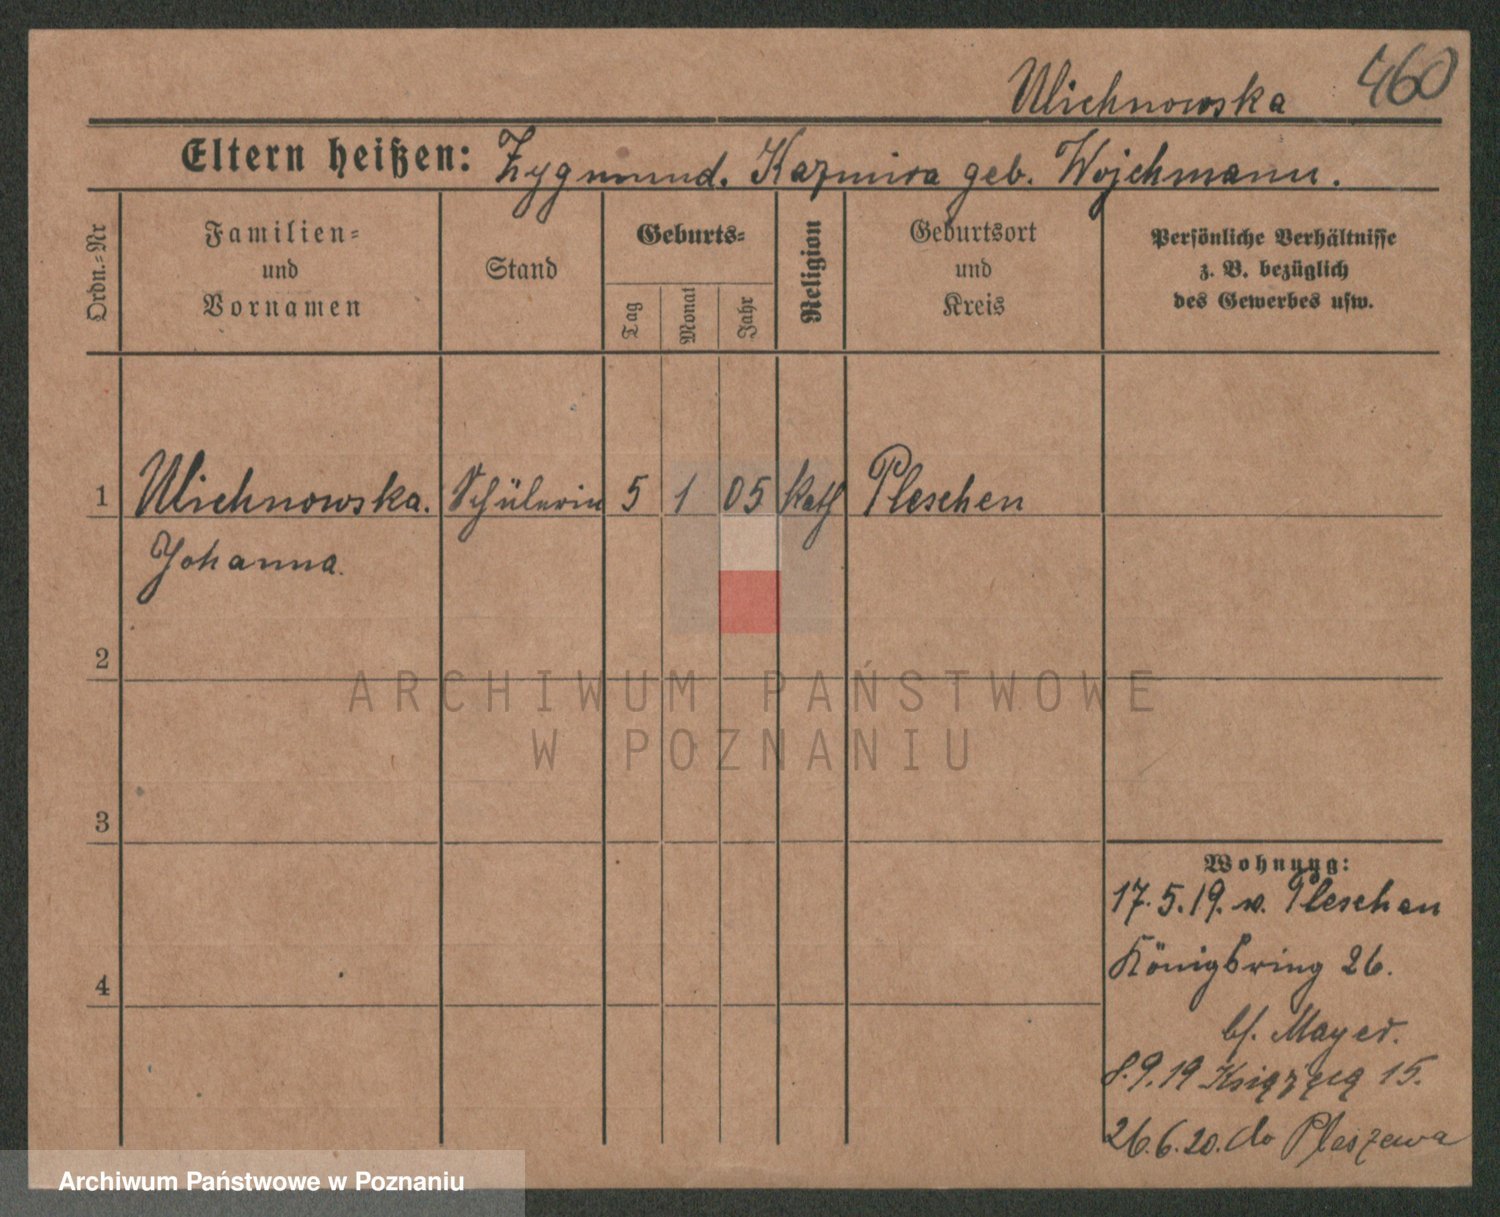 Ulichnowska 460
Eltern heißen: Zygmund. Kazmira geb. Wojchmann.
Ordn.=Nr
Familien=
und
Vornamen
Stand
Geburts=
Tag
Monat
Jahr
Religion
Geburtsort
und
Kreis
Persönliche Verhältnisse
z. B. bezüglich
des Gewerbes usw.
1 Ulichnowska. Schülerin 5 1 05 Kath Pleschen
Johanna.
2
ARCHIWUM PAŃSTWOWE
W POZNANIU
3
Wohnung:
17.5.19. v. Pleschen
Königsring 26.
4
bf. Mayer.
8.9.19 15.
26.6.20. do Pleszewa
Archiwum Państwowe w Poznaniu